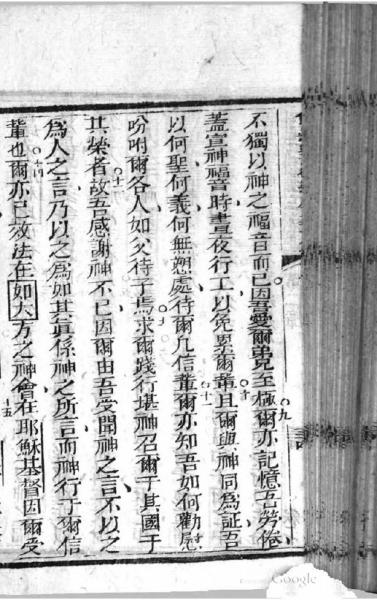 不獨以神之福音而已因吾愛爾弟兄至極爾亦記憶吾勞倦
蓋宣神福音時晝夜行工以免累爾輩且爾與神同為証吾
以何聖何義何無愆處待爾凡信輩爾亦知吾如何勸慰
吩咐爾各人如父待子焉求爾踐行堪神召爾于其國于
其榮者故吾感謝神不已因爾由吾受聞神之言不以之
為人之言乃以之為如其眞係神之所言而神行于爾信
輩也爾亦已效法在如大方之神會在耶穌基督因爾受
九
十
十一
十二
十三
十四
十五
Google